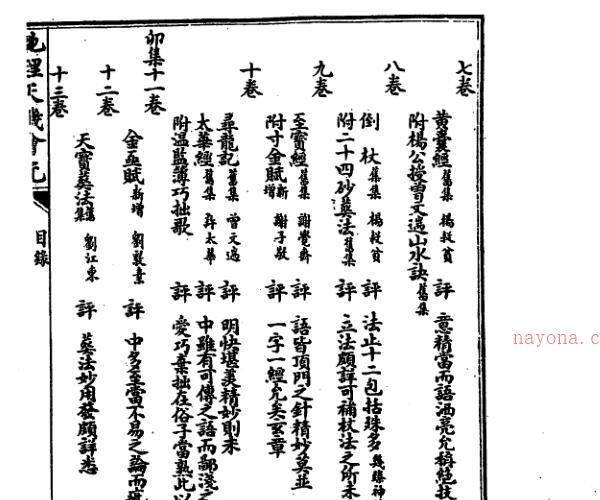 七卷
黃囊經 舊集 楊救貧 評 意精當而語洒亮允稱絶技
附楊公授曾文遄山水訣 舊集
八卷
倒杖 舊集 楊救貧 評 法止十二包括殊多 幾臻神
附二十四砂葬法 舊集 評 立法頗詳可補杖法之所未
九卷
至寶經 舊集 謝覺齋 評 語皆頂門之針精妙莫並
附寸金賦 新增 謝子敬 評 一字一經允矣玄章
十卷
尋龍記 舊集 曾文遄 評 明快堪美精妙則未
太華經 舊集 許太華 評 中雖有可傳之語而鄙淺之
附温監簿巧拙歌 評 愛巧棄拙在俗子當熟此以
卯集十一卷
金函賦 新增 劉敦素 評 中多至當不易之論而
十二卷
天寶葬法 舊集 劉江東 評 葬法妙用發頗詳悉
十三卷
地理天機會元
目錄
nayona.c